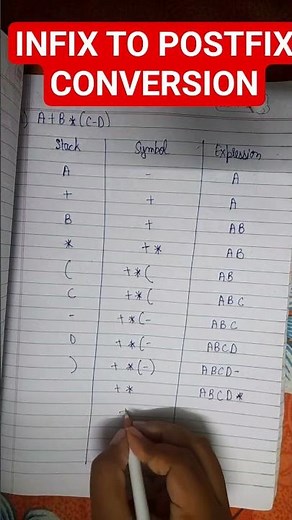 INFIX TO POSTFIX
CONVERSION
) A+B*(C-D)
Stack Symbol Expression
A - A
+ + A
B + AB
* +* AB
( +*( AB
C +*( ABC
- +*(- ABC
D +*(- ABCD
) +*(-) ABCD-
+* ABCD*